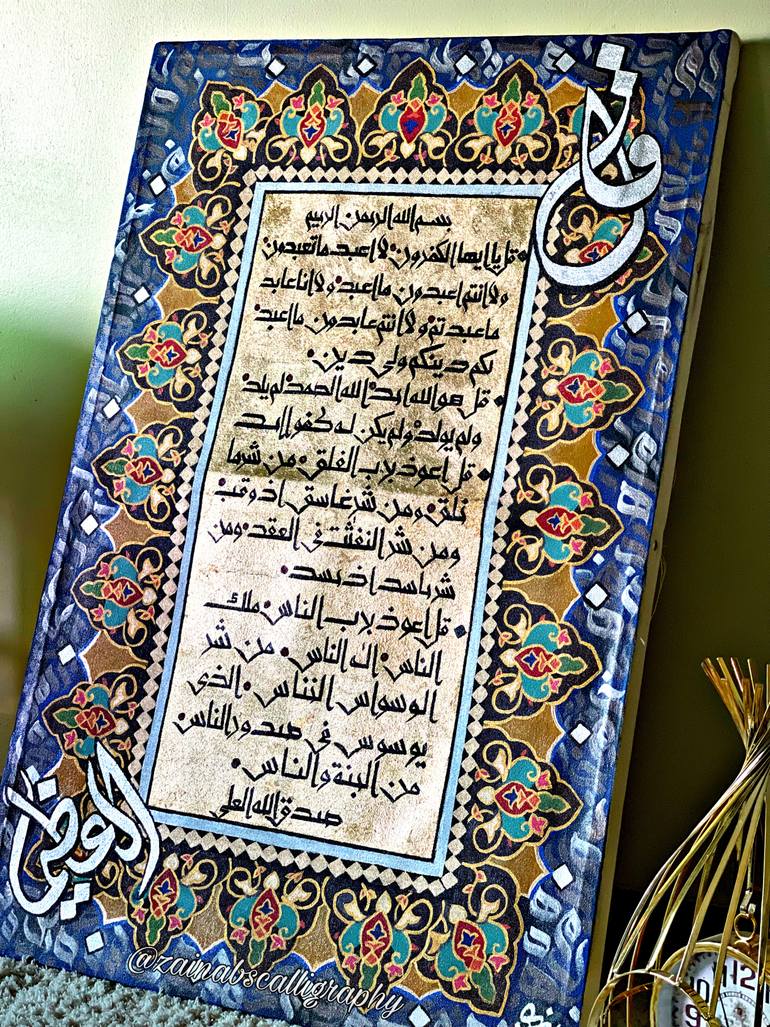 بسم الله الرحمن الرحيم
قل يا ايها الكفرون لا اعبد ما تعبدون
ولا انتم اعبدون ما اعبد ولا انا عابد
ما عبدتم ولا انتم عابدون ما اعبد
لكم دينكم ولي دين
قل هو الله احد الله الصمد لم يلد
ولم يولد ولم يكن له كفوا احد
قل اعوذ برب الفلق من شر ما
خلق ومن شر غاسق اذ وقب
ومن شر النفثت في العقد ومن
شر حاسد اذ حسد
قل اعوذ برب الناس ملك
الناس اله الناس من شر
الوسواس الخناس الذي
يوسوس في صدور الناس
من الجنة والناس
صدق الله العلي
@zainabscalligraphy
12
11
10
9